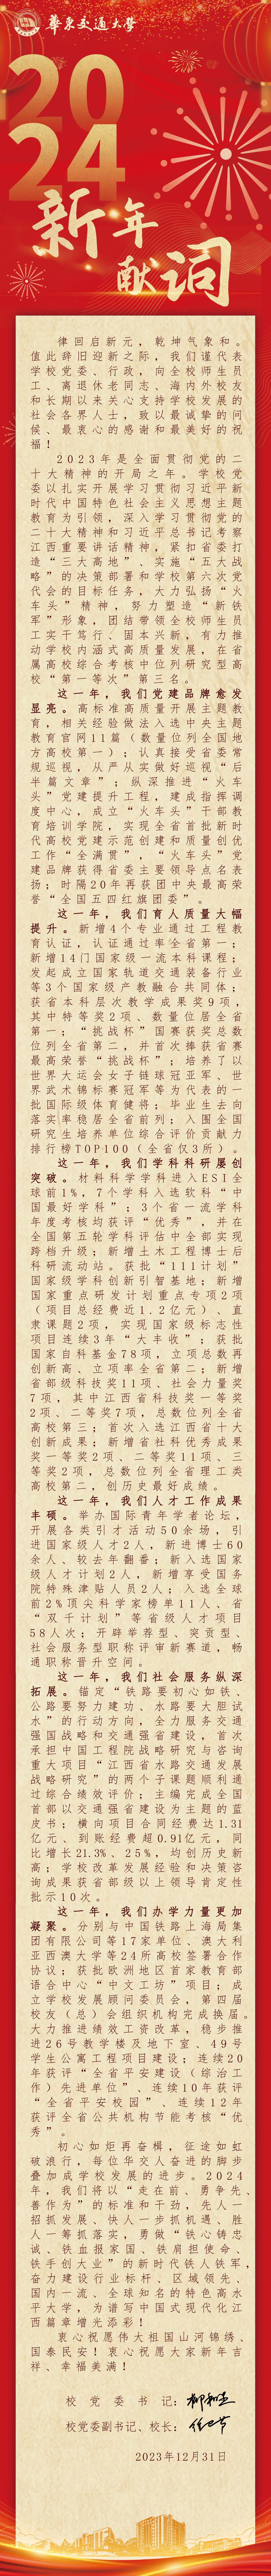 華東交通大學
20
24
新年
献词
律回启新元，乾坤气象和。
值此辞旧迎新之际，我们谨代表
学校党委、行政，向全校师生员
工、离退休老同志、海内外校友
和长期以来关心支持学校发展的
社会各界人士，致以最诚挚的问
候、最衷心的感谢和最美好的祝
福！
2023年是全面贯彻党的二
十大精神的开局之年。学校党
委以扎实开展学习贯彻习近平新
时代中国特色社会主义思想主题
教育为引领，深入学习贯彻党的
二十大精神和习近平总书记考察
江西重要讲话精神，紧扣省委打
造“三大高地”、实施“五大战
略”的决策部署和学校第六次党
代会的目标任务，大力弘扬“火
车头”精神，努力塑造“新铁
军”形象，团结带领全校师生员
工实干笃行、固本兴新，有力推
动学校内涵式高质量发展，在省
属高校综合考核中位列研究型高
校“第一等次”第三名。
这一年，我们党建品牌愈发
显亮。高标准高质量开展主题教
育，相关经验做法入选中央主题
教育官网11篇（数量位列全国地
方高校第一）；认真接受省委常
规巡视，从严从实做好巡视“后
半篇文章”；纵深推进“火车
头”党建提升工程，建成指挥调
度中心，成立“火车头”干部教
育培训学院，实现全省首批新时
代高校党建示范创建和质量创优
工作“全满贯”，“火车头”党
建品牌获得省委主要领导点名表
扬；时隔20年再获团中央最高荣
誉“全国五四红旗团委”。
这一年，我们育人质量大幅
提升。新增4个专业通过工程教
育认证，认证通过率全省第一；
新增14门国家级一流本科课程；
发起成立国家轨道交通装备行业
等3个国家级产教融合共同体；
获省本科层次教学成果奖9项，
其中特等奖2项、数量位居全省
第一；“挑战杯”国赛获奖总数
位列全省第二，并首次捧获省赛
最高荣誉“挑战杯”；培养了以
世界大运会女子链球冠亚军、世
界武术锦标赛冠军等为代表的一
批国际级体育健将；毕业生去向
落实率稳居全省前列；入围全国
研究生培养单位综合评价贡献力
排行榜TOP100（全省仅3所）。
这一年，我们学科科研屡创
突破。材料科学学科进入ESI全
球前1%，7个学科入选软科“中
国最好学科”；3个省一流学科
年度考核均获评“优秀”，并在
全国第五轮学科评估中全部实现
跨档升级；新增土木工程博士后
科研流动站。获批“111计划”
国家级学科创新引智基地；新增
国家重点研发计划重点专项2项
（项目总经费近1.2亿元）、直
隶课题2项，实现国家级标志性
项目连续3年“大丰收”；获批
国家自科基金78项，立项总数再
创新高、立项率全省第二；新增
省部级科技奖11项、社会力量奖
7项，其中江西省科技奖一等奖
2项、二等奖7项，总数位列全省
高校第三；首次入选江西省十大
创新成果；新增省社科优秀成果
奖一等奖2项、二等奖11项、三
等奖2项，总数位列全省理工类
高校第二，创历史最好成绩。
这一年，我们人才工作成果
丰硕。举办国际青年学者论坛，
开展各类引才活动50余场，引
进国家级人才2人，新进博士60
余人、较去年翻番；新入选国家
级人才计划2人，新增享受国务
院特殊津贴人员2人；入选全球
前2%顶尖科学家榜单11人、省
“双千计划”等省级人才项目
58人次；开辟举荐型、突贡型、
社会服务型职称评审新赛道，畅
通职称晋升空间。
这一年，我们社会服务纵深
拓展。锚定“铁路要初心如铁、
公路要努力建功、水路要大胆试
水”的行动方向，全力服务交通
强国战略和交通强省建设，首次
承担中国工程院战略研究与咨询
重大项目“江西省水路交通发展
战略研究”的两个子课题顺利通
过综合绩效评价；主编完成全国
首部以交通强省建设为主题的蓝
皮书；横向项目合同经费达1.31
亿元、到账经费超0.91亿元，同
比增长21.3%、25%，均创历史新
高；学校改革发展经验和决策咨
询成果获省部级以上领导肯定性
批示10次。
这一年，我们办学力量更加
凝聚。分别与中国铁路上海局集
团有限公司等17家单位、澳大利
亚西澳大学等24所高校签署合作
协议；获批欧洲地区首家教育部
语合中心“中文工坊”项目；成
立学校发展顾问委员会，第四届
校友（总）会组织机构完成换届。
大力推进绩效工资改革，稳步推
进26号教学楼及地下室、49号
学生公寓工程项目建设；连续20
年获评“全省平安建设（综治工
作）先进单位”、连续10年获评
“全省平安校园”、连续12年
获评全省公共机构节能考核“优
秀”。
初心如炬再奋楫，征途如虹
破浪行，每位华交人奋进的脚步
叠加成学校发展的进步。2024
年，我们将以“走在前、勇争先、
善作为”的标准和干劲，先人一
招抓发展、快人一步抓机遇、胜
人一筹抓落实，勇做“铁心铸忠
诚、铁血报家国、铁肩担使命、
铁手创大业”的新时代铁人铁军，
奋力建设行业标杆、区域领先、
国内一流、全球知名的特色高水
平大学，为谱写中国式现代化江
西篇章增光添彩！
衷心祝愿伟大祖国山河锦绣、
国泰民安！衷心祝愿大家新年吉
祥、幸福美满！
校党委书记：柳和生
校党委副书记、校长：
2023年12月31日